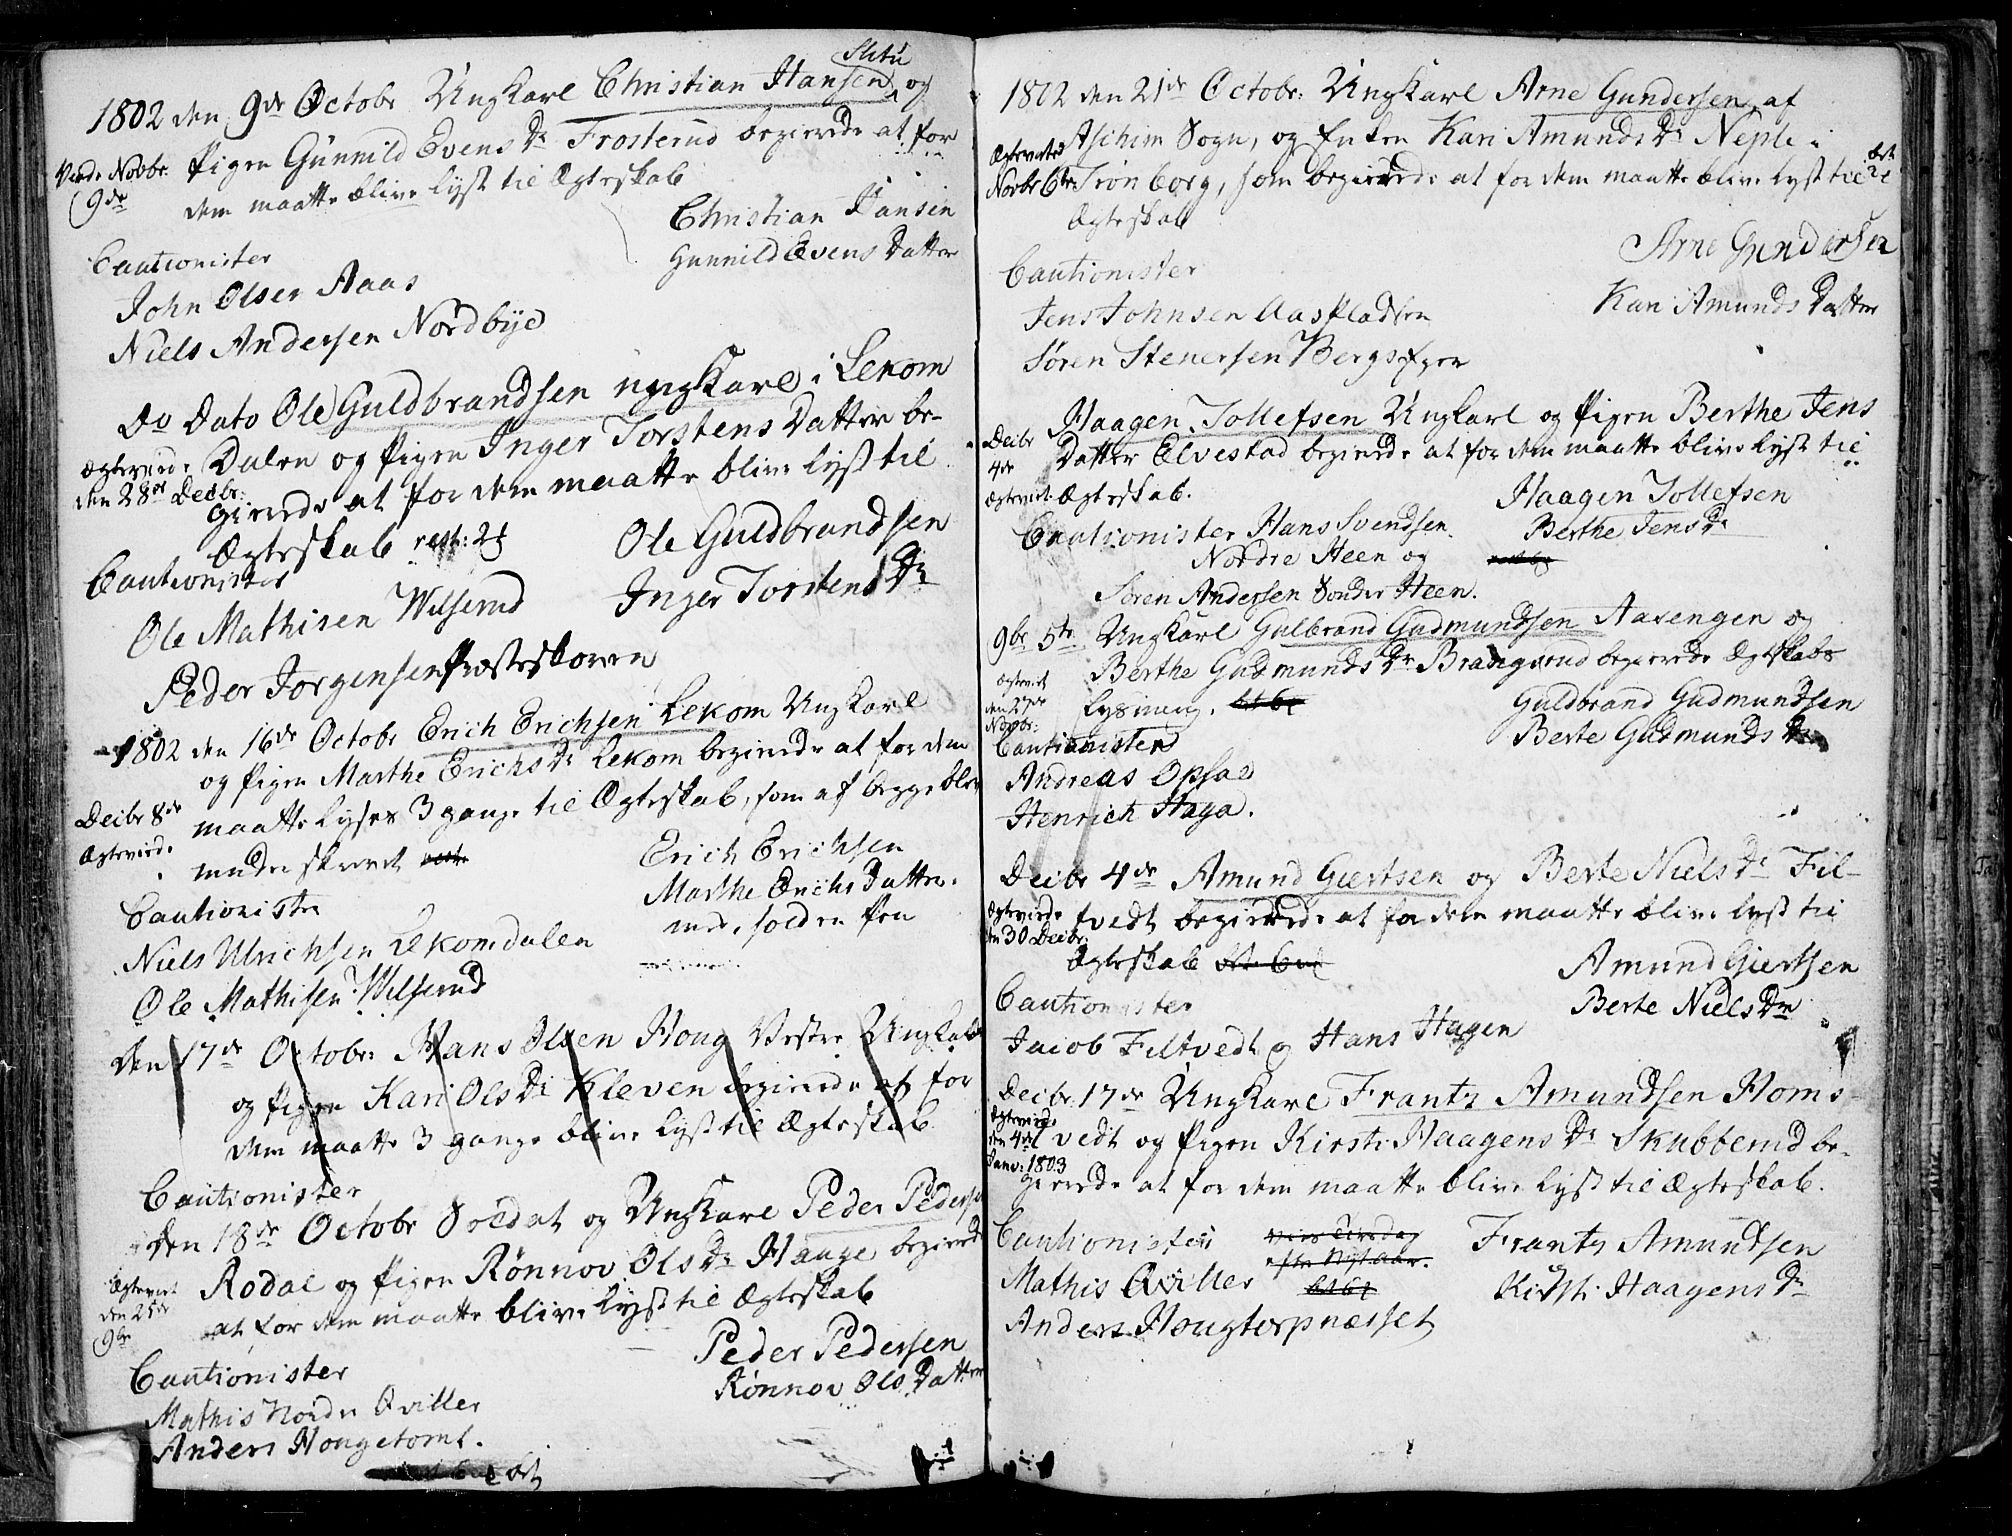 Slitu
1802 den 9de Octobr Ungkarl Christian Hansen og
Viede Novbr Pigen Gunnild Evens Dr Frosterud begierede at for
9de dem maatte blive lyst til Ægteskab
Christian Hansen
Cautionister Gunnild Evens Datter
John Olsen Aaas
Niels Andersen Nordbye
Do Dato Ole Guldbrandsen ungkarl i Lekom
Ægteviede Dalen og Pigen Inger Torstens Datter be-
den 28de Decbr: gierede at for dem maatte blive lyst til
Ægteskab rest: 2
Ole Guldbrandsen
Cautionister
Ole Mathisen Wilserud Inger Torstens Dr
Peder Jorgensen Præsteskoven
1802 den 16de Octobr Erich Erichsen Lekom Ungkarl
og Pigen Marthe Erichs Dr Lekom begierede at for dem
Decbr 8de maatte lyses 3 gange til Ægteskab, som af begge blev
Ægteviede underskrevet
Erich Erichsen
Cautionister Marthe Erichs Datter.
med iholden Pen
Niels Ulrichsen Lekomdalen
Ole Mathisen Wilserud
Den 17de Octobr: Hans Olsen Houg Vestre Ungkarl
og Pigen Kari Ols Dr Kleven begierede at for
dem maatte 3 gange blive lyst til Ægteskab
Cautionister
den 18de Octobr Soldat og Ungkarl Peder Pedersen
Ægteviet Rodal og Pigen Rønnov Ols Dr Hauge begierede
den 25de at for dem maatte blive lyst til Ægteskab
9br
Peder Pedersen
Cautionister Rønnov Ols Datter
Mathis Nordre Qviller
Anders Hougetomt.
1802 den 21de Octobr: Ungkarl Arne Gundersen af
Ægteviede Aschim Sogn, og Enken Kari Amunds Dr Neple i
Novbr 6te Trönborg, som begierede at for dem maatte blive lyst til
Ægteskab
Arne Gundersen
Cautionister
Jens Johnsen Aaspladsen Kari Amunds Datter
Søren Stenersen Bergs
Haagen Tollefsen Ungkarl og Pigen Berthe Jens
Decbr Datter Elvestad begierede at for dem maatte blive lyst til
4de
Ægteviet Ægteskab.
Haagen Tollefsen
Cautionister Hans Svendsen Berthe Jens Dr
Nordre Heen og
Søren Andersen Sonder Heen.
9br 5te Ungkarl Gulbrand Gudmundsen Aasengen og
Ægteviet Berthe Gudmunds Dr Brangsrud begierede Ægteskabs
den 27de Lysning.
Novbr:
Guldbrand Gudmundsen
Cautionister Berte Gudmunds Dr
Andreas Opsal
Henrich Haga.
Decbr 4de Amund Giertsen og Berte Niels Dr Fil-
Ægteviede tvedt begierede at for dem maatte blive lyst til
den 30 Decbr: Ægteskab
Amund Giertsen
Cautionister Berte Niels Dr
Jacob Filtvedt og Hans Hagen
Decbr: 17de Ungkarl Frantz Amundsen Homs-
Ægteviede tvedt og Pigen Kirsti Haagens Dr Skubberud be-
den 4de
Janv: 1803 gierede at for dem maatte blive lyst til Ægteskab.
Cautionister Frantz Amundsen
Mathis Qviller Kirsti Haagens Dr
Anders Hougtorpnæsset